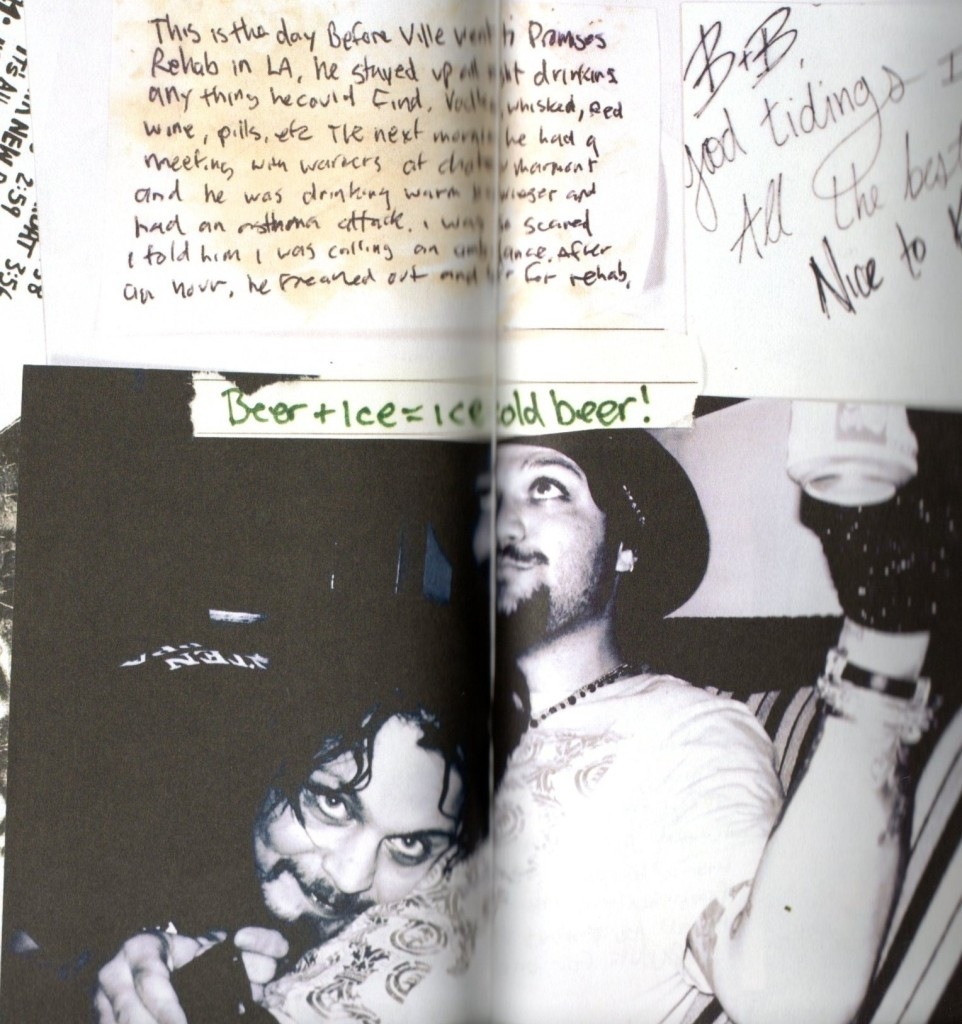 This is the day Before Ville went to Promises
Rehab in LA, he stayed up all night drinking
anything he could Find. Vodka, whisked, Red
wine, pills, etc The next morning he had a
meeting with warners at chateau marmont
and he was drinking warm and
had an asthma attack. i was so scared
i told him i was calling an ambulance. After
an hour, he Freaked out and for rehab.
B+B,
good tidings I
All the best
Nice to
Beer + Ice = ice cold beer!
2:59
3:56